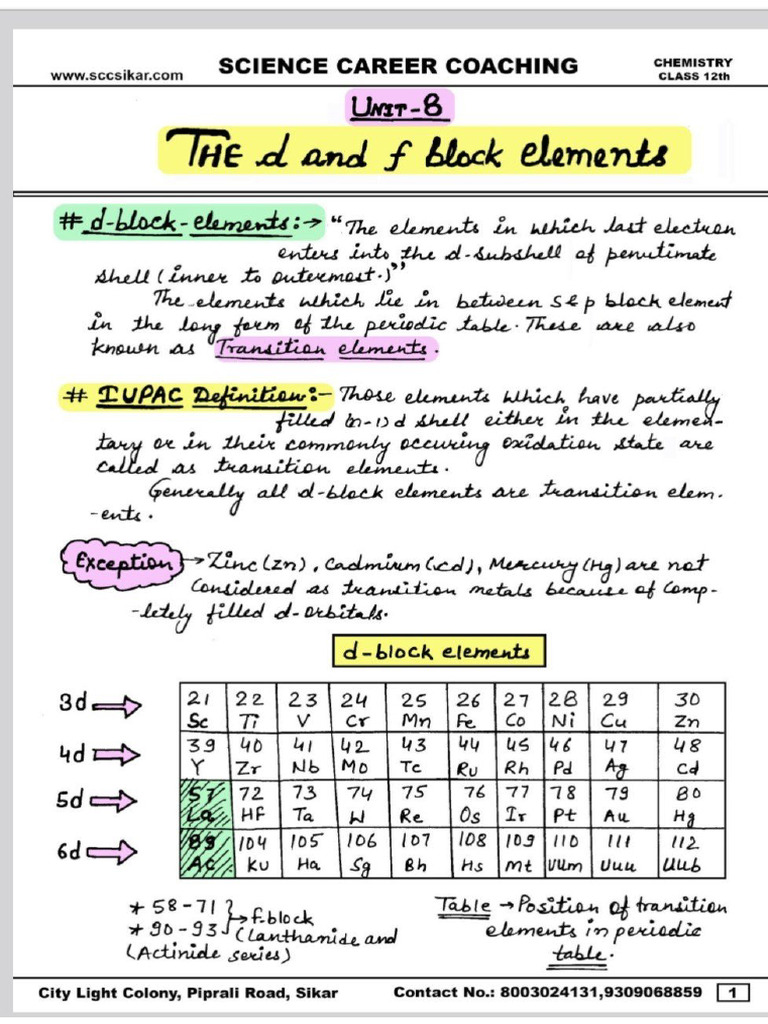 www.sccsikar.com
SCIENCE CAREER COACHING
CHEMISTRY
CLASS 12th
UNIT-8
THE d and f block elements
# d-block-elements:→ "The elements in which last electron
enters into the d-subshell of penutimate
shell (inner to outermost.)"
The elements which lie in between s & p block element
in the long form of the periodic table. These are also
known as Transition elements.
# IUPAC Definition:- Those elements which have partially
filled (n-1)d shell either in the elemen-
tary or in their commonly occuring oxidation state are
called as transition elements.
Generally all d-block elements are transition elem.
-ents.
Exception → Zinc (Zn), Cadmium (Cd), Mercury (Hg) are not
Considered as transition metals because of Comp-
-letely filled d-orbitals.
d-block elements
3d ⇒ 21 22 23 24 25 26 27 28 29 30
Sc Ti V Cr Mn Fe Co Ni Cu Zn
4d ⇒ 39 40 41 42 43 44 45 46 47 48
Y Zr Nb Mo Tc Ru Rh Pd Ag Cd
5d ⇒ 57 72 73 74 75 76 77 78 79 80
La Hf Ta W Re Os Ir Pt Au Hg
6d ⇒ 89 104 105 106 107 108 109 110 111 112
Ac Ku Ha Sg Bh Hs Mt Uum Uuu Uub
* 58-71
* 90-93 → f-block
(Lanthanide and
(Actinide series)
Table → Position of transition
elements in periodic
table.
City Light Colony, Piprali Road, Sikar
Contact No.: 8003024131,9309068859
1